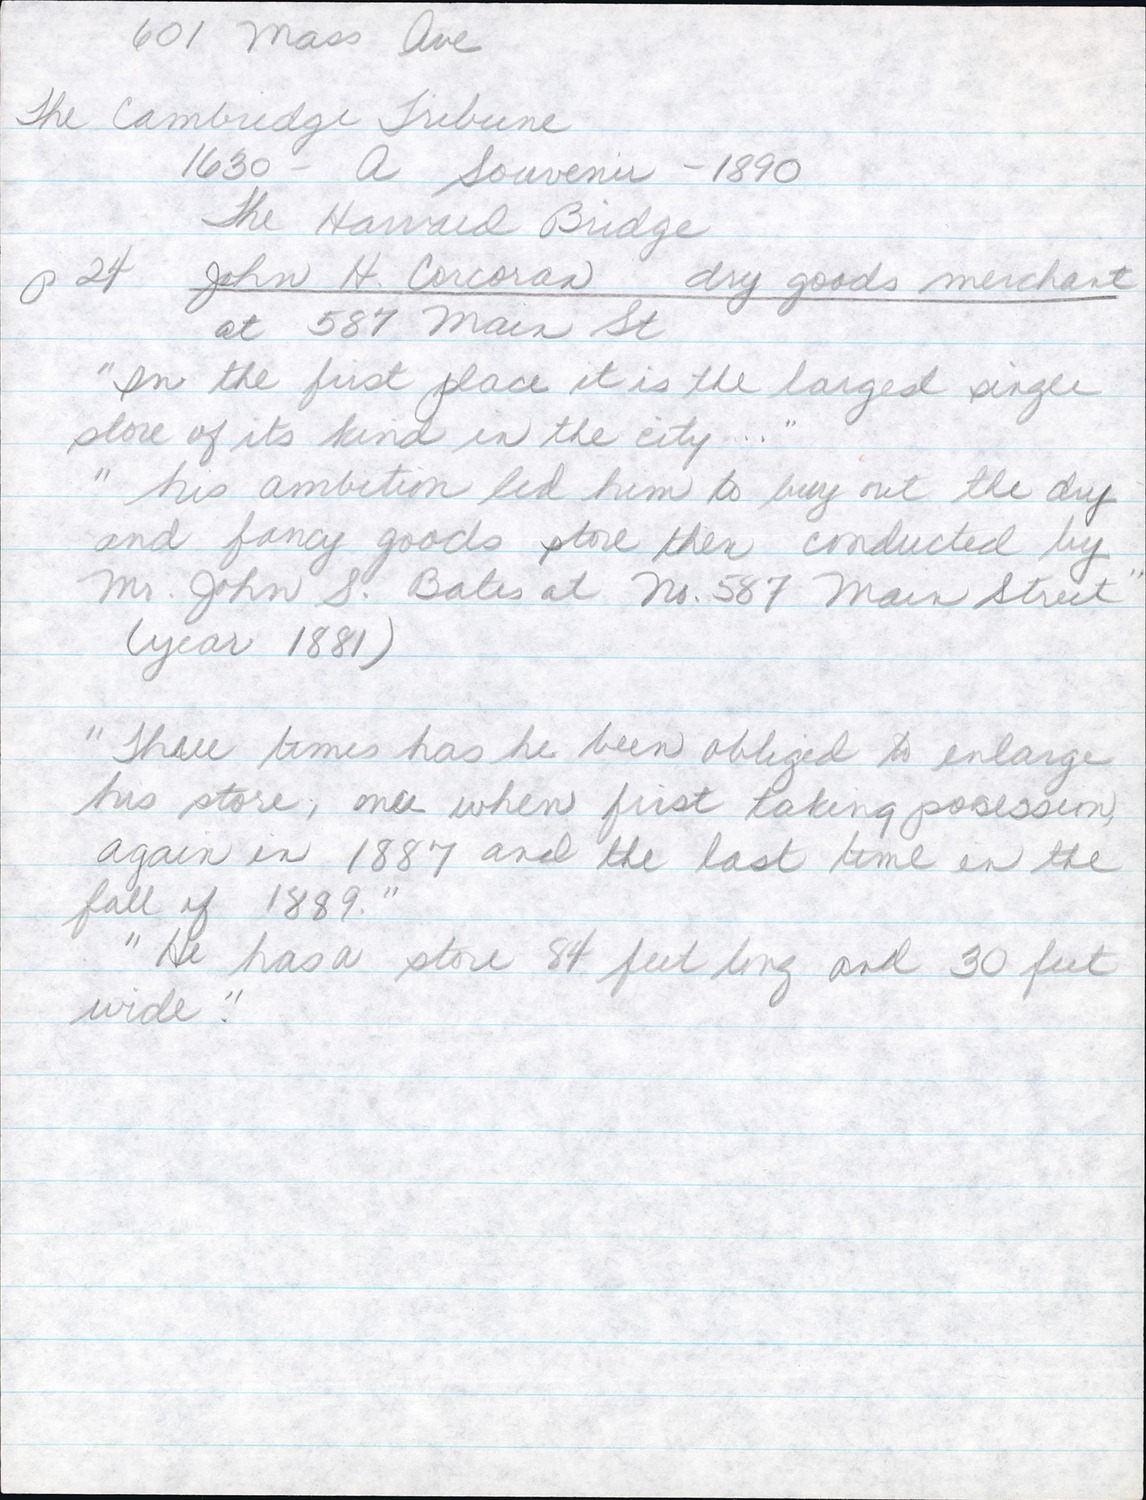 601 Mass Ave
The Cambridge Tribune
1630 - A Souvenir - 1890
The Harvard Bridge
p 24 John H. Corcoran dry goods merchant
at 587 Main St
"In the first place it is the largest single
store of its kind in the city ..."
" his ambition led him to buy out the dry
and fancy goods store then conducted by
Mr. John S. Bates at No. 587 Main Street"
(year 1881)
"Three times has he been obliged to enlarge
his store, once when first taking posession,
again in 1887 and the last time in the
fall of 1889."
"He has a store 84 feet long and 30 feet
wide."